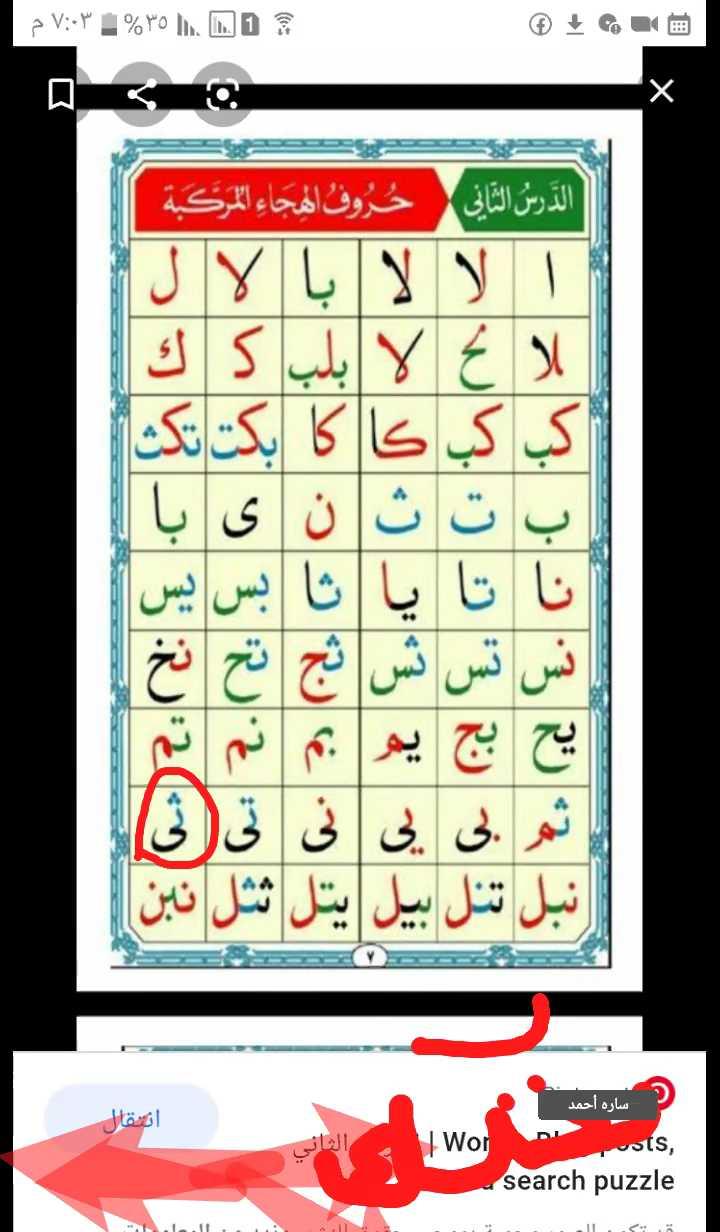 ٧:٠٣ م ٣٥% 1
الدَّرسُ الثَّانِي حُرُوفُ الهِجَاءِ المُرَكَّبَة
ا لا لا با لا ل
لا نح لا بلب ك ك
كب كب كا كا بكت تكث
ب ت ث ن ى با
نا تا يا ثا بس يس
نس تس ثس ثج تح نخ
يح بج يم بم نم تم
ثم بى يى نى تى ثى
نبل تنل بيل يتل ثثل نبن
٧
ساره أحمد
انتقال
الثاني | Wor
search puzzle